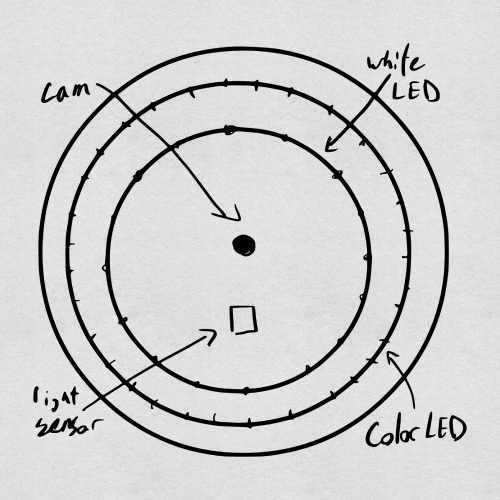 cam
white
LED
light
sensor
Color LED